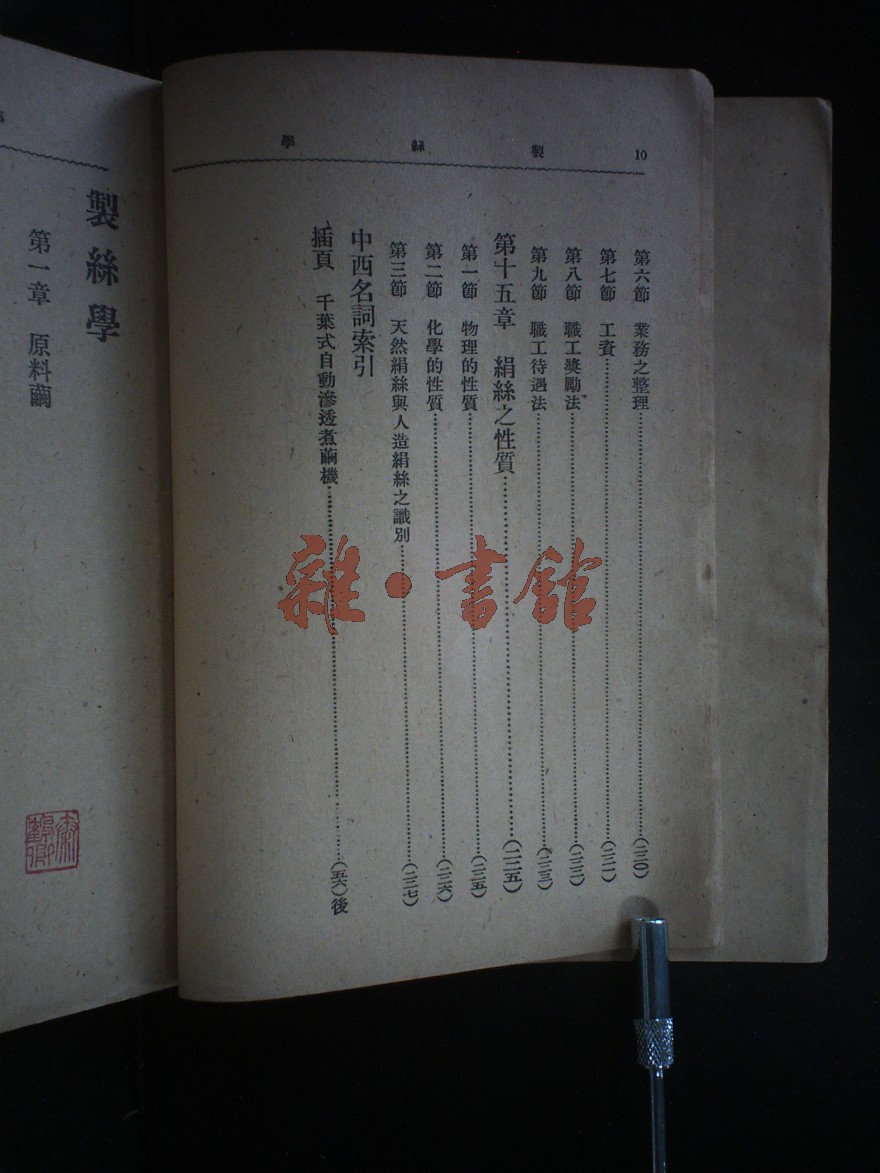 10 製絲學
第六節 業務之整理……(二二〇)
第七節 工資……(二二一)
第八節 職工獎勵法……(二二二)
第九節 職工待遇法……(二二三)
第十五章 絹絲之性質……(二二五)
第一節 物理的性質……(二二五)
第二節 化學的性質……(二二六)
第三節 天然絹絲與人造絹絲之識別……(二二七)
中西名詞索引
插頁 千葉式自動滲透煮繭機……(五六)後
製絲學
第一章 原料繭
雜·書館